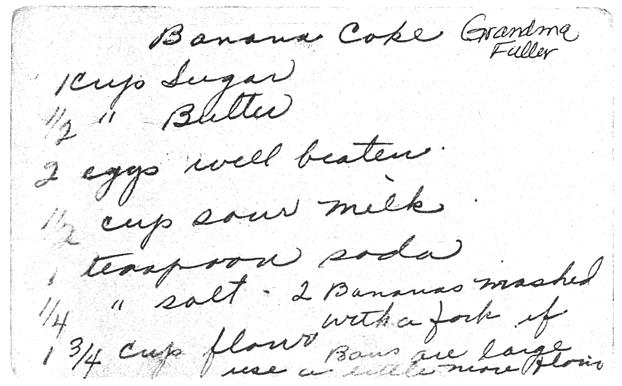 Banana Cake Grandma Fuller
1 cup Sugar
1/2 " Butter
2 eggs well beaten.
1/2 cup sour milk
1 teaspoon soda
1/4 " salt - 2 Bananas mashed
with a fork if
1 3/4 cup flour Bans are large
use a little more flour